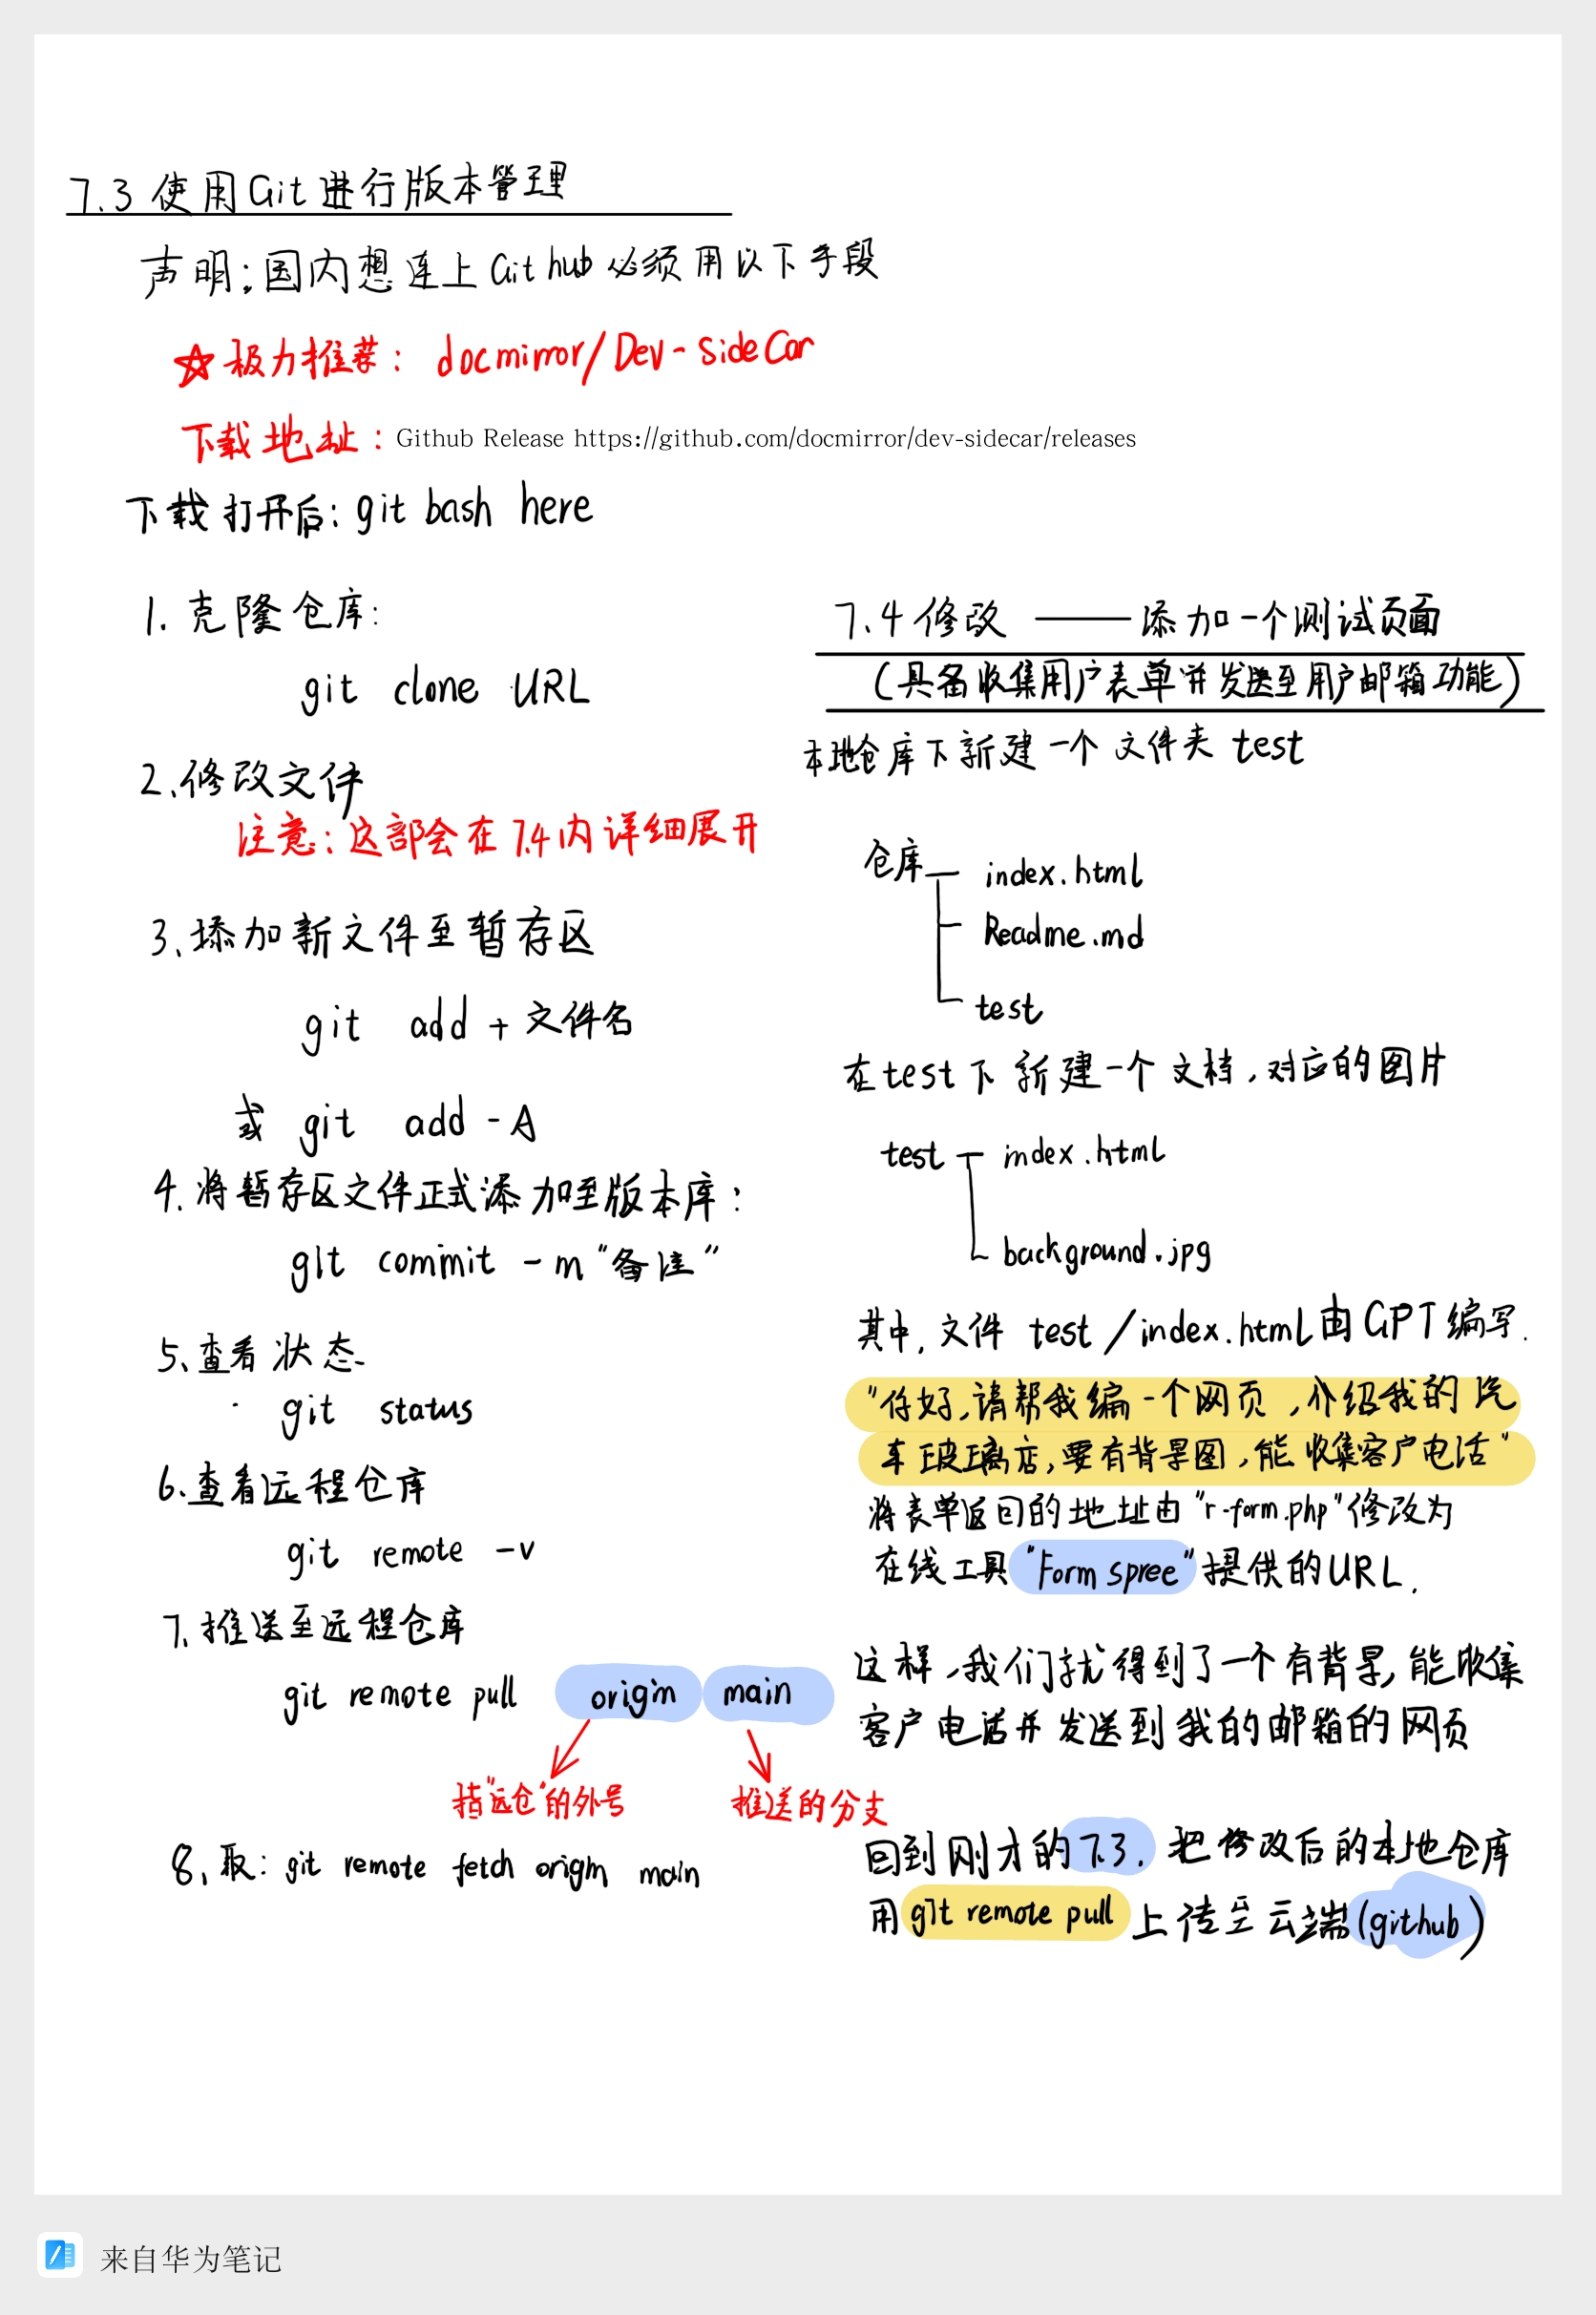 7.3 使用Git进行版本管理
声明:国内想连上Github必须用以下手段
☆极力推荐: docmirror/Dev-SideCar
下载地址: Github Release https://github.com/docmirror/dev-sidecar/releases
下载打开后: git bash here
1. 克隆仓库:
git clone URL
2、修改文件
注意:这部会在7.4内详细展开
3、添加新文件至暂存区
git add + 文件名
或 git add -A
4. 将暂存区文件正式添加至版本库:
git commit -m “备注”
5、查看状态
git status
6、查看远程仓库
git remote -v
7、推送至远程仓库
git remote pull origin main
指“远仓”的外号
推送的分支
8、取: git remote fetch origin main
7.4修改 ——添加一个测试页面
(具备收集用户表单并发送至用户邮箱功能)
本地仓库下新建一个文件夹 test
仓库 index.html
Readme.md
test
在test下新建一个文档,对应的图片
test index.html
background.jpg
其中,文件 test/index.html由GPT编写.
“你好,请帮我编一个网页,介绍我的汽
车玻璃店,要有背景图,能收集客户电话”
将表单返回的地址由“r-form.php”修改为
在线工具“Form spree”提供的URL.
这样,我们就得到了一个有背景,能收集
客户电话并发送到我的邮箱的网页
回到刚才的7.3. 把修改后的本地仓库
用git remote pull 上传至云端(github)
来自华为笔记